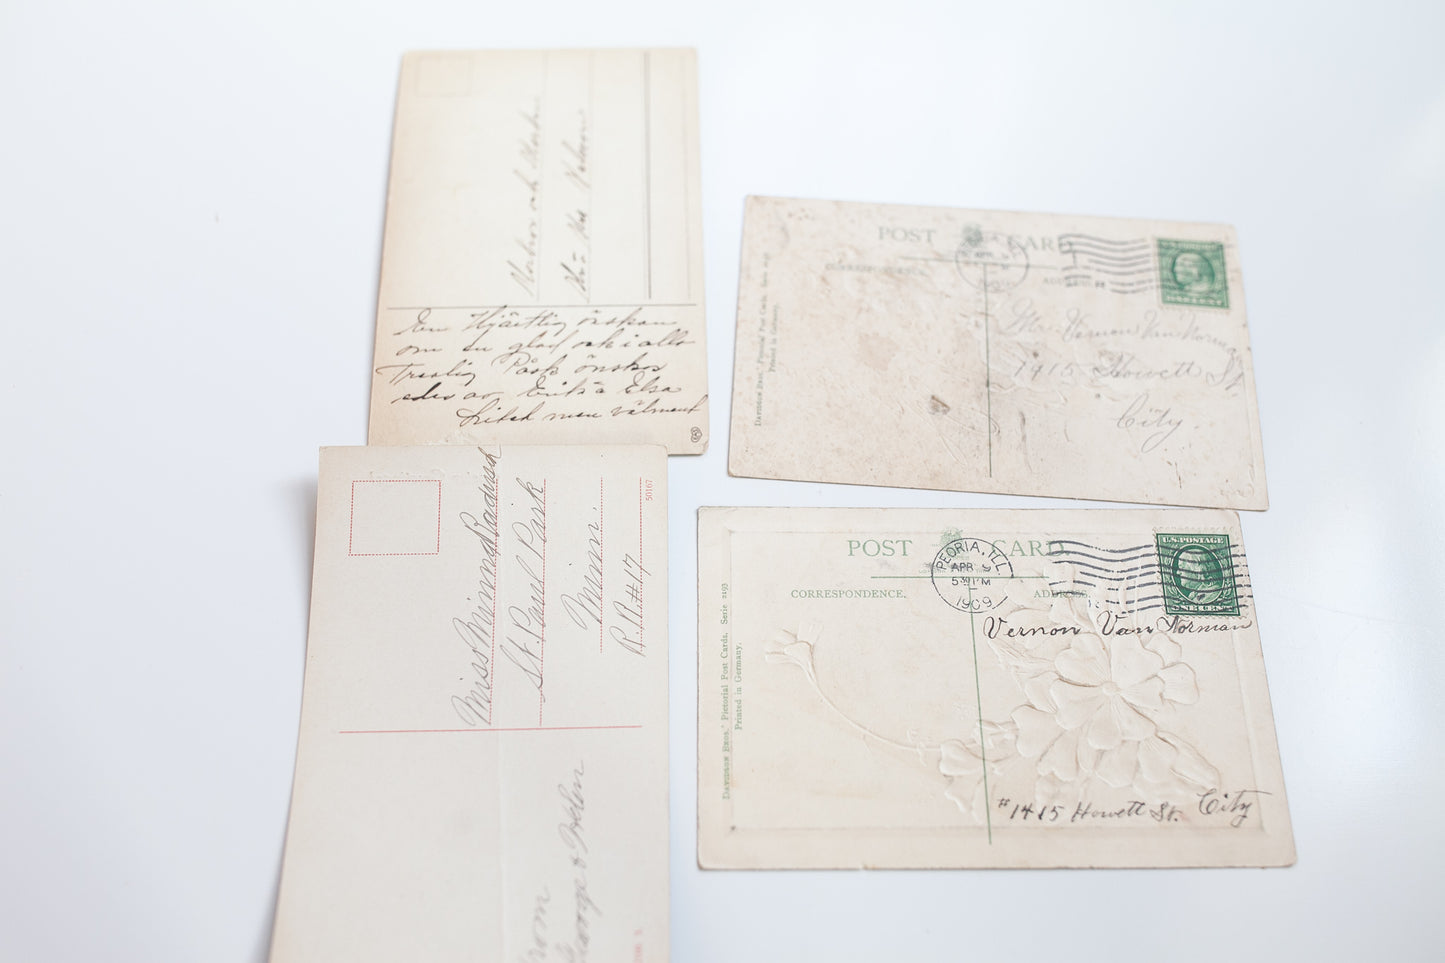 och
En Hjärtlig önskan
om en glad och i alla
Treflig Påsk önskas
eder av Elsa
Litet men välment
Miss Minna
St Paul Park
Minn.
R.R.#17
50167
From
George & Helen
POST CARD
CORRESPONDENCE.
Davidson Bros.' Pictorial Post Cards. Serie 2193
Printed in Germany.
Vernon Van Norman
1415 Howett St
City.
POST CARD.
CORRESPONDENCE.
ADDRESS.
PEORIA, ILL.
APR 9
530 PM
1909
U.S. POSTAGE
ONE CENT
Davidson Bros.' Pictorial Post Cards. Serie 2193
Printed in Germany.
Vernon Van Norman
#1415 Howett St. City